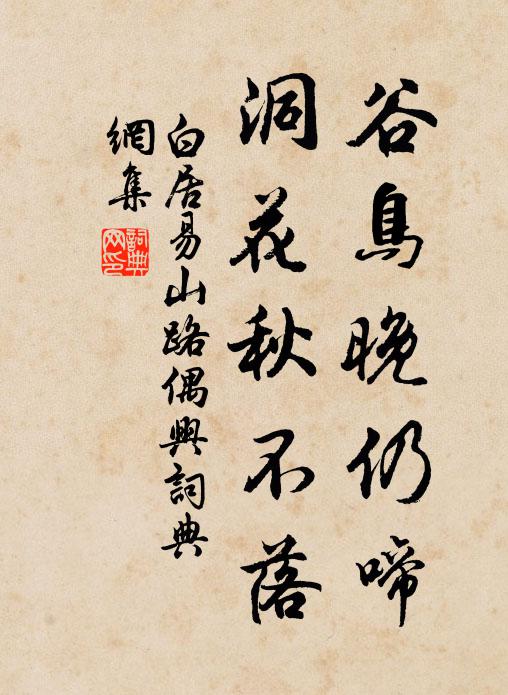 谷鳥晚仍啼
洞花秋不落
白居易山路偶興詞典
網集
詞典
网印